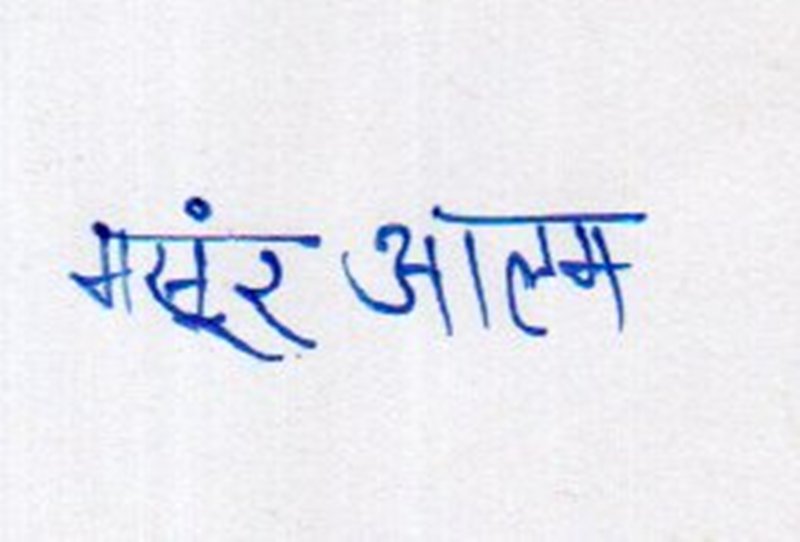 मखूंर आलम